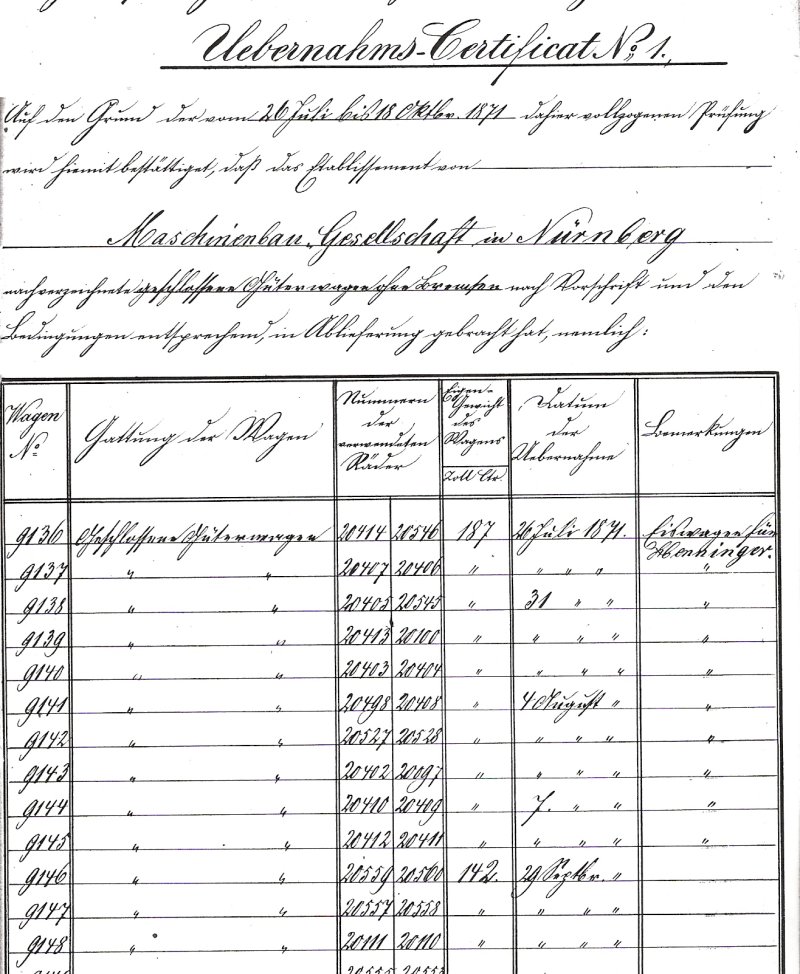 Uebernahms-Certificat No. 1.
Auf den Grund der vom 26 Juli bis 18 Oktbr. 1871 dahier vollzogenen Prüfung
wird hiemit bestättiget, daß das Etablissement von
Maschinenbau-Gesellschaft in Nürnberg
nachverzeichnete geschlossene Güterwagen ohne Bremsen nach Vorschrift und den
Bedingungen entsprechend, in Ablieferung gebracht hat, nemlich:
Wagen No. Gattung der Wagen Nummern der verwendeten Räder Eigen-Gewicht des Wagens Zoll Ctr. Datum der Uebernahme Bemerkungen
9136 Geschlossene Güterwagen 20414 20546 187 26 Juli 1871. Eiswagen für Henninger.
9137 " " 20407 20406 " " " " "
9138 " " 20405 20545 " 31 " " "
9139 " " 20413 20100 " " " " "
9140 " " 20403 20404 " " " " "
9141 " " 20498 20408 " 4 August " "
9142 " " 20527 20528 " " " " "
9143 " " 20402 20097 " " " " "
9144 " " 20410 20409 " 7. " " "
9145 " " 20412 20411 " " " " "
9146 " " 20559 20560 142. 29 Septbr. "
9147 " " 20557 20558 " " " "
9148 " " 20111 20110 " " " "